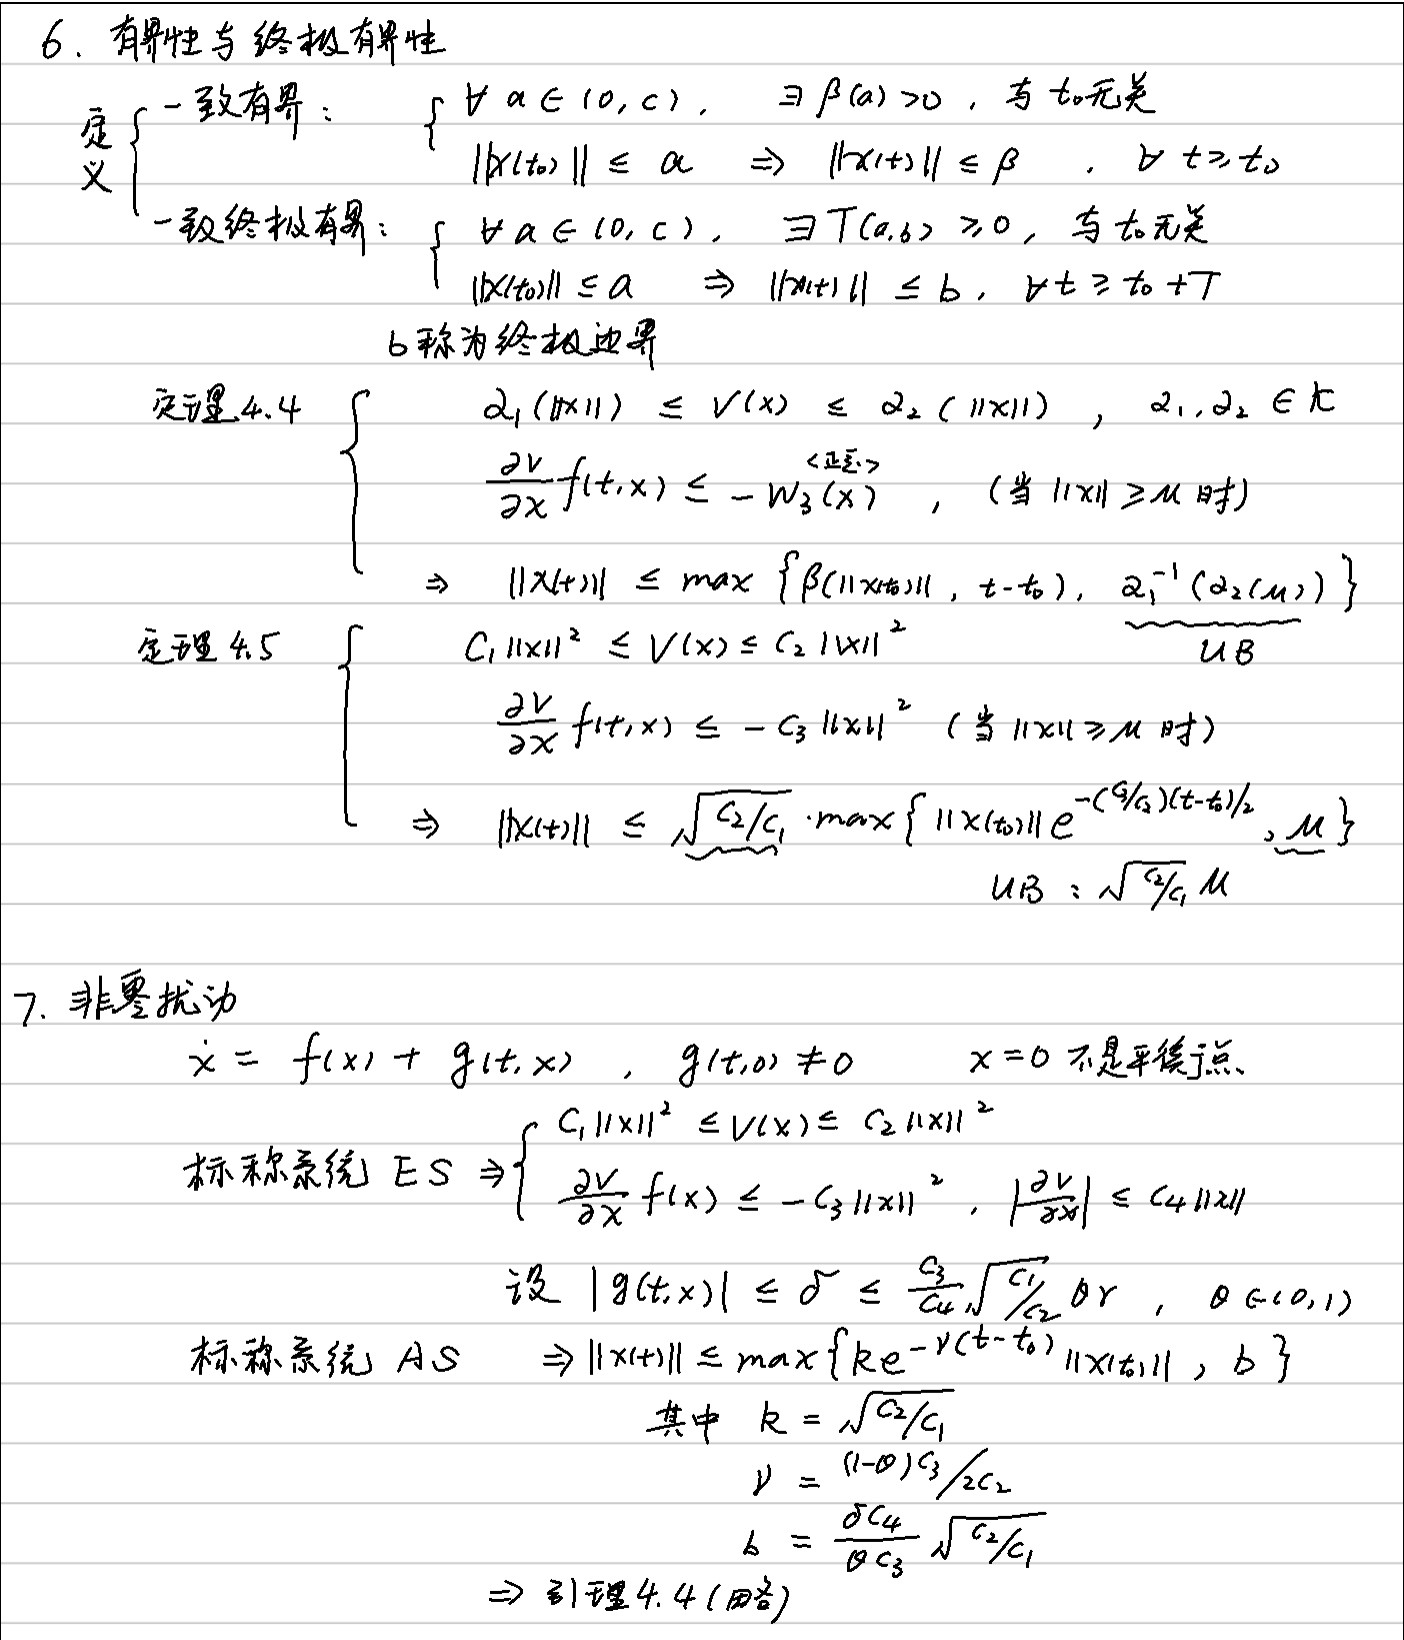 6. 有界性与终极有界性
定义 { 一致有界: { ∀ a ∈ (0, c), ∃ β(a) > 0, 与 t₀ 无关
||x(t₀)|| ≤ a ⇒ ||x(t)|| ≤ β , ∀ t ≥ t₀
一致终极有界: { ∀ a ∈ (0, c), ∃ T(a,b) ≥ 0, 与 t₀ 无关
||x(t₀)|| ≤ a ⇒ ||x(t)|| ≤ b, ∀ t ≥ t₀ + T
b 称为终极边界
定理 4.4 { α₁(||x||) ≤ V(x) ≤ α₂(||x||) , α₁, α₂ ∈ K
<正定>
∂V/∂x f(t,x) ≤ -W₃(x) , (当 ||x|| ≥ μ 时)
⇒ ||x(t)|| ≤ max {β(||x(t₀)||, t-t₀), α₁⁻¹(α₂(μ))}
UB
定理 4.5 { C₁||x||² ≤ V(x) ≤ C₂||x||²
∂V/∂x f(t,x) ≤ -C₃||x||² (当 ||x|| ≥ μ 时)
⇒ ||x(t)|| ≤ √(C₂/C₁) · max{ ||x(t₀)|| e^(-(C₃/C₂)(t-t₀)/2), μ}
UB : √(C₂/C₁) μ
7. 非零扰动
ẋ = f(x) + g(t,x) , g(t,0) ≠ 0 x = 0 不是平衡点
标称系统 ES ⇒ { C₁||x||² ≤ V(x) ≤ C₂||x||²
∂V/∂x f(x) ≤ -C₃||x||² , |∂V/∂x| ≤ C₄||x||
设 |g(t,x)| ≤ δ ≤ C₃/C₄ √(C₁/C₂) θr , θ ∈ (0,1)
标称系统 AS ⇒ ||x(t)|| ≤ max{k e^(-γ(t-t₀)) ||x(t₀)||, b}
其中 k = √(C₂/C₁)
γ = (1-θ)C₃/2C₂
b = δC₄/θC₃ √(C₂/C₁)
⇒ 引理 4.4 (略)